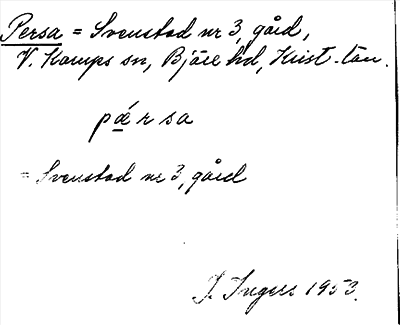 Persa = Svenstad nr 3, gård,
V. Karups sn, Bjäre hd, Krist. län.
pǽrsa
= Svenstad nr 3, gård
J. Ingers 1953.